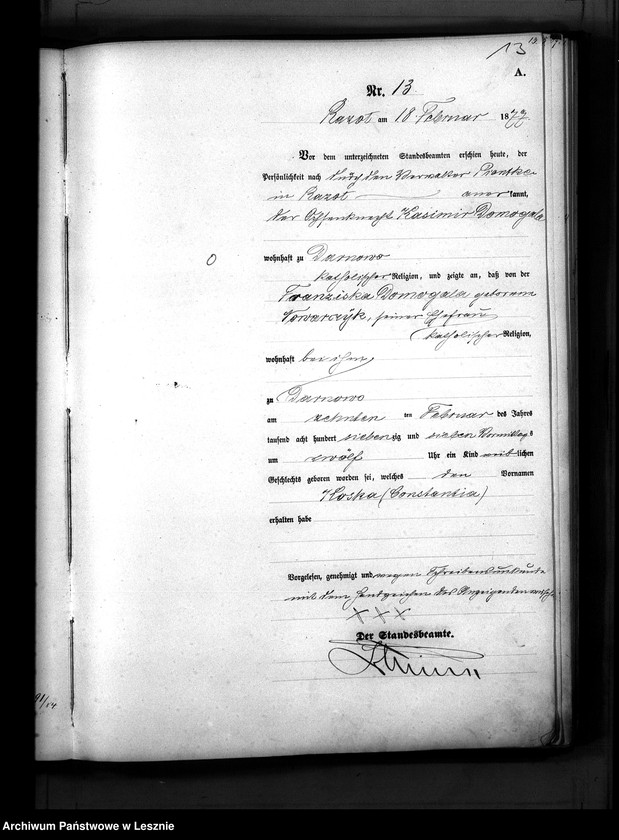 13
A.
Nr. 13.
Razot am 18 Februar 1877
Vor dem unterzeichneten Standesbeamten erschien heute, der
Persönlichkeit nach durch den Verwalter
in Razot anerkannt,
der Ochsenknecht Kasimir Domogala
wohnhaft zu Darnowo
katholischer Religion, und zeigte an, daß von der
Franziska Domogala geborenen
Nowarczÿk, seiner Ehefrau
katholischer Religion,
wohnhaft bei ihm
zu Darnowo
am zehnten ten Februar des Jahres
tausend acht hundert siebenzig und sieben Vormittags
um zwölf Uhr ein Kind weiblichen
Geschlechts geboren worden sei, welches den Vornamen
Koska (Constantia)
erhalten habe
Vorgelesen, genehmigt und wegen Schreibensunkunde
mit dem Handzeichen des Anzeigenden
+++
Der Standesbeamte.
91/14
Archiwum Państwowe w Lesznie